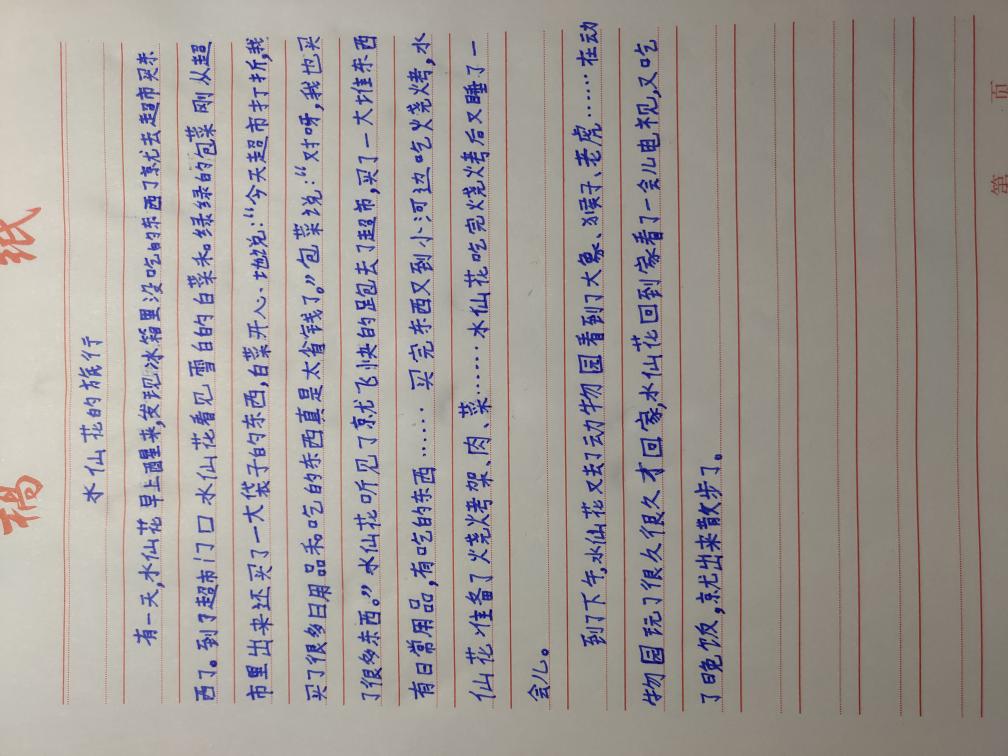 稿 纸
水仙花的旅行
有一天,水仙花早上醒来,发现冰箱里没吃的东西了就去超市买东
西了。到了超市门口水仙花看见雪白的白菜和绿绿的包菜刚从超
市里出来还买了一大袋子的东西,白菜开心地说:“今天超市打折,我
买了很多日用品和吃的东西真是太省钱了。”包菜说:“对呀,我也买
了很多东西。”水仙花听见了就飞快的跑去了超市,买了一大堆东西
有日常用品,有吃的东西…… 买完东西又到小河边吃火烧烤,水
仙花准备了火烧烤架、肉、菜……水仙花吃完火烧烤后又睡了一
会儿。
到了下午,水仙花又去了动物园看到了大象、猴子、老虎……在动
物园玩了很久很久才回家,水仙花回到家看了一会儿电视,又吃
了晚饭,就出来散步了。
第 页